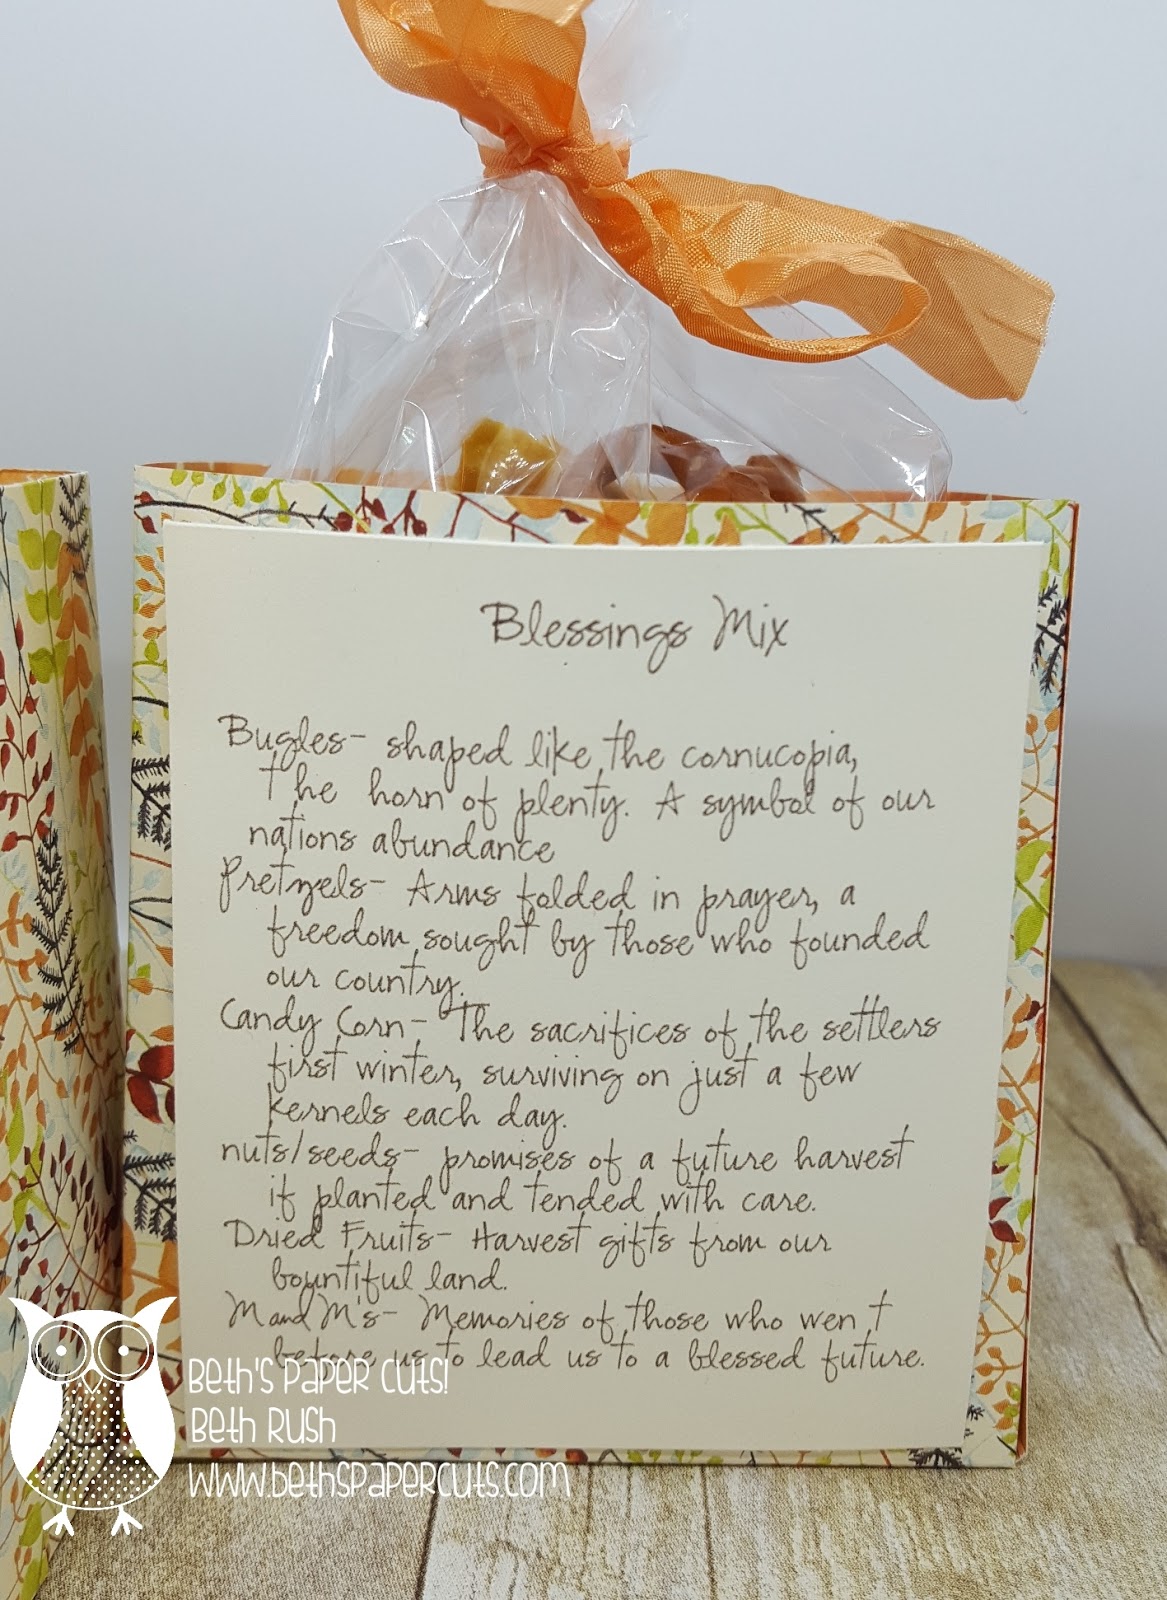 Blessings Mix
Bugles- shaped like the cornucopia,
the horn of plenty. A symbol of our
nations abundance
Pretzels- Arms folded in prayer, a
freedom sought by those who founded
our country.
Candy Corn- The sacrifices of the settlers
first winter, surviving on just a few
kernels each day.
nuts/seeds- promises of a future harvest
if planted and tended with care.
Dried Fruits- Harvest gifts from our
bountiful land.
M and M's- Memories of those who went
before us to lead us to a blessed future.
Beth's Paper Cuts!
Beth Rush
www.bethspapercuts.com